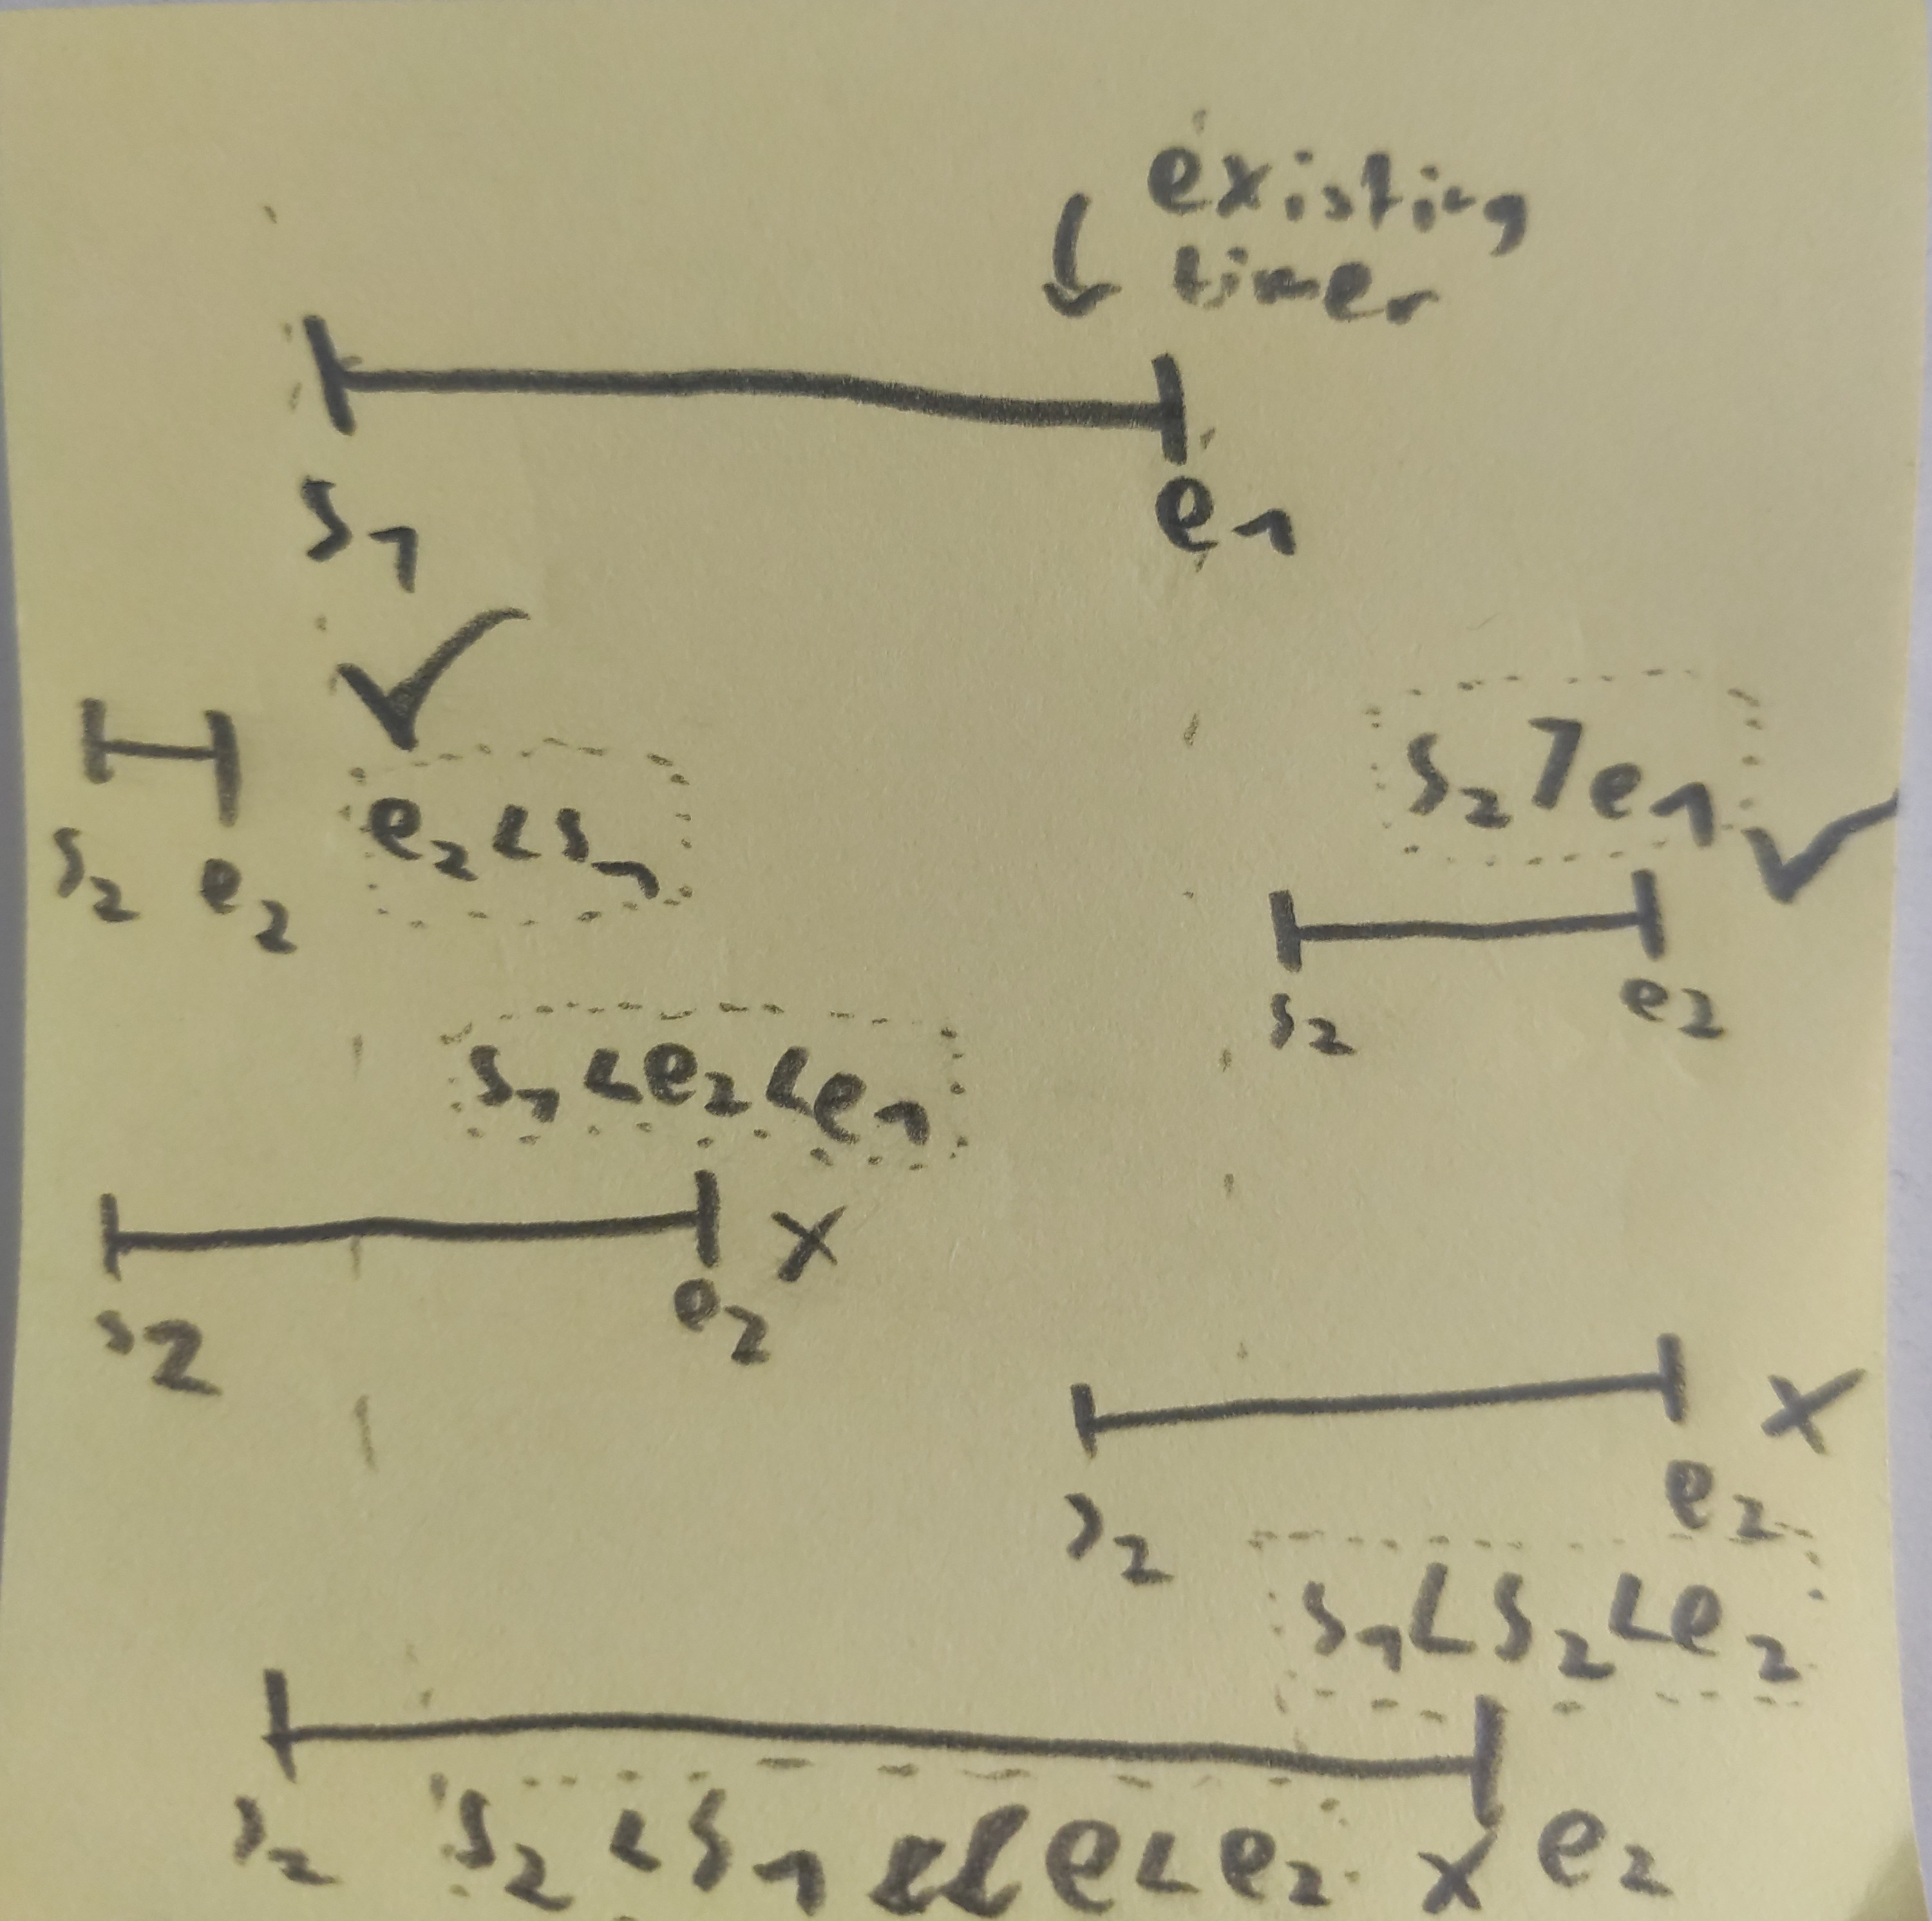 existing
timer
s1 e1
✓
s2 > e1 ✓
s2 e2 e2 < s1
s2 e2
s1 < e2 < e1
x
s2 e2
x
s2 e2
s1 < s2 < e2
s2 s2 < s1 < e < e2 x e2